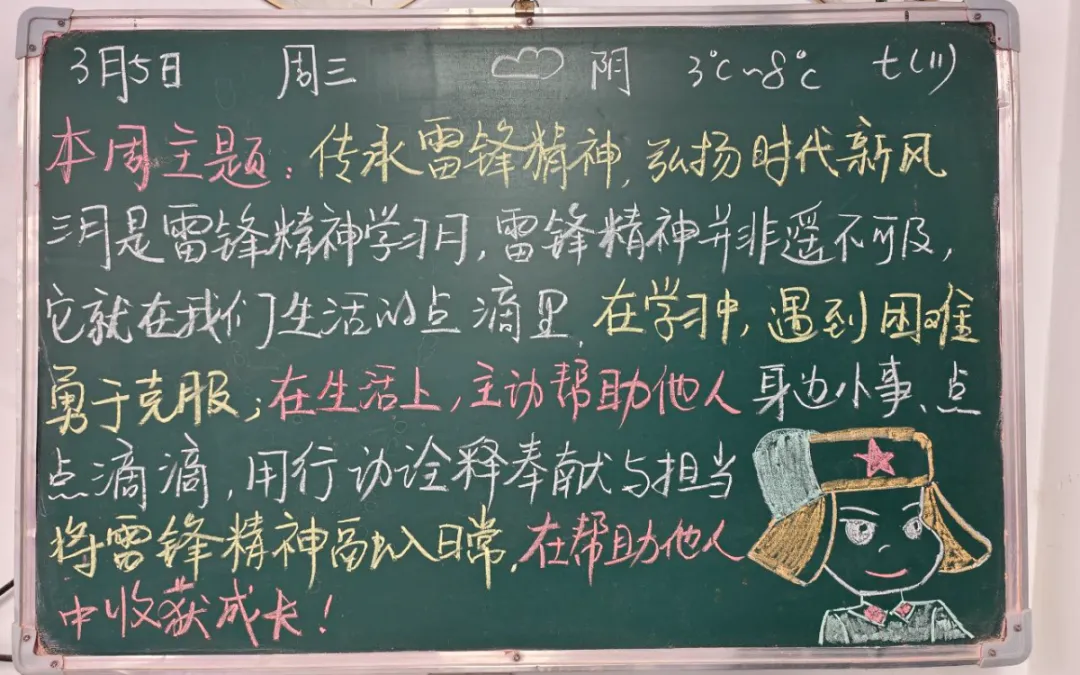 3月5日 周三 阴 3℃~8℃ 七(11)
本周主题：传承雷锋精神，弘扬时代新风
三月是雷锋精神学习月，雷锋精神并非遥不可及，
它就在我们生活的点滴里，在学习中，遇到困难
勇于克服；在生活上，主动帮助他人 身边小事、点
点滴滴，用行动诠释奉献与担当
将雷锋精神融入日常，在帮助他人
中收获成长！